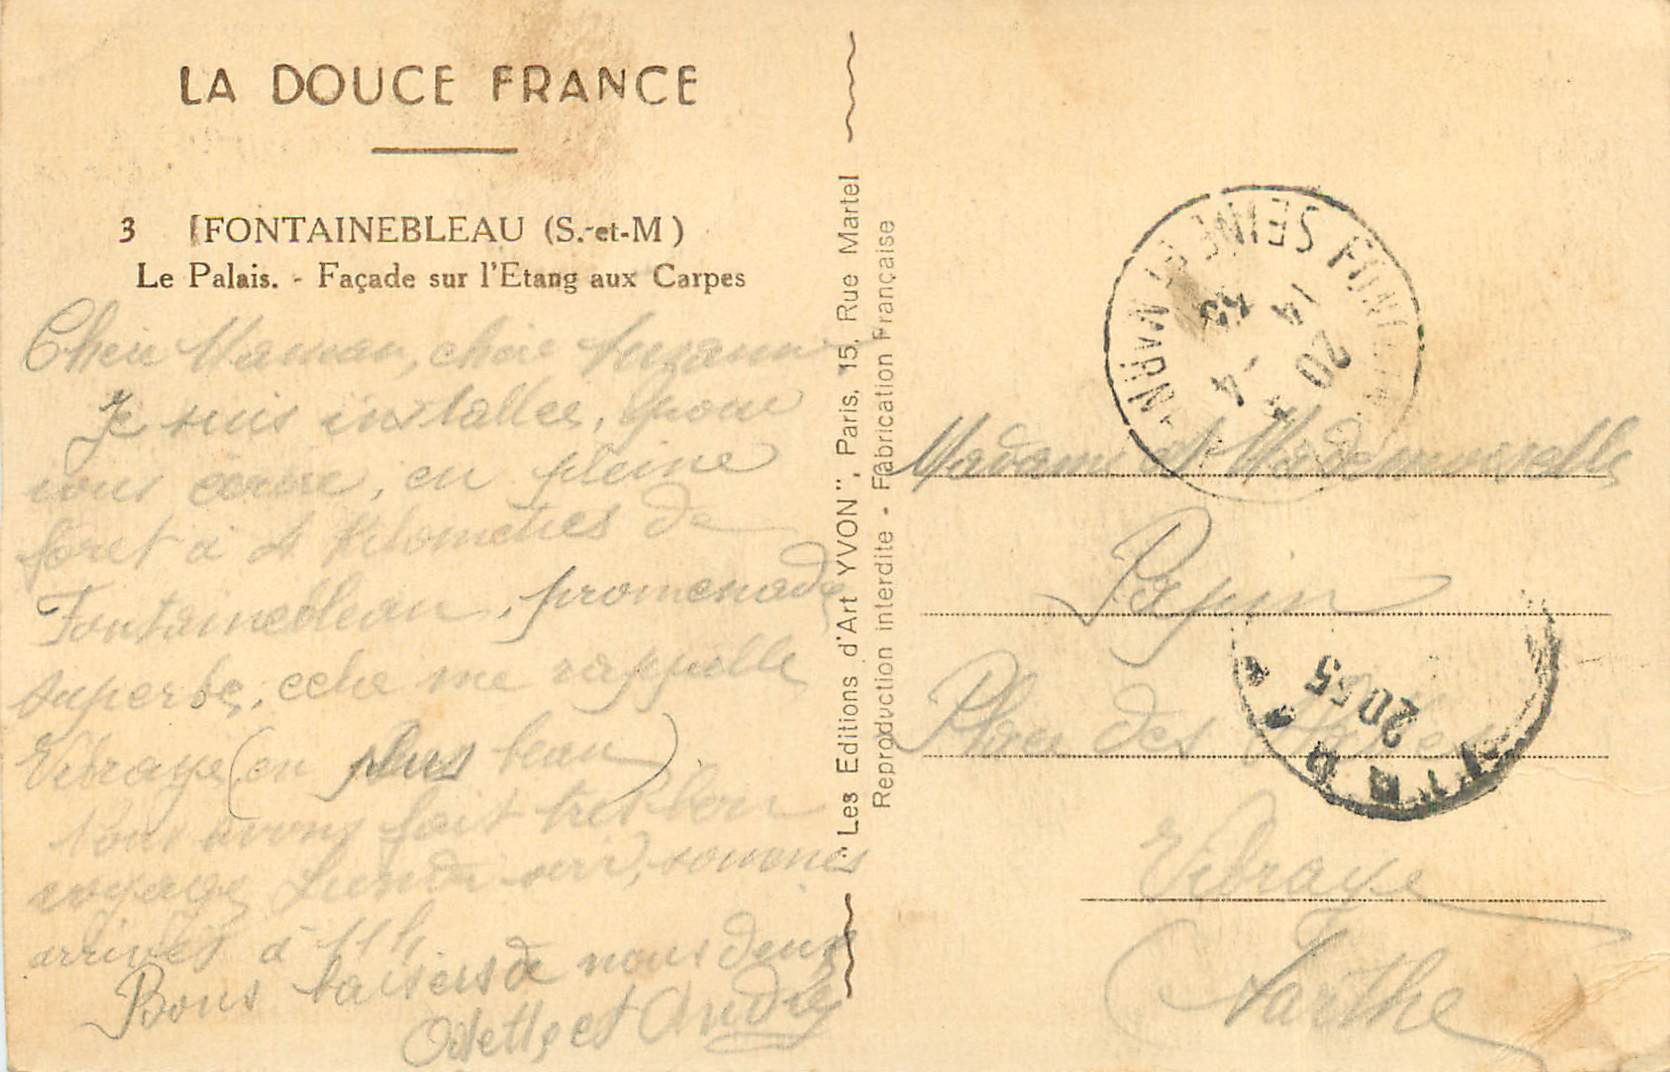 LA DOUCE FRANCE
3 FONTAINEBLEAU (S.-et-M)
Le Palais. - Façade sur l'Etang aux Carpes
Chère Maman, chère Suzanne
Je suis installée, pour
vous écrire, en pleine
foret à 4 kilomètres de
Fontainebleau, promenade
superbe, cela me rappelle
Vibraye (en plus beau)
Nous avons fait très bon
voyage Lundi soir, sommes
arrivés à 11h
Bons baisers de nous deux
Odette et André
"Les Editions d'Art YVON", Paris, 15, Rue Martel
Reproduction interdite - Fabrication Française
SEINE ET MARNE
14
20
4
Madame et Mademoiselle
Papin
Place des
2035
Vibraye
Sarthe